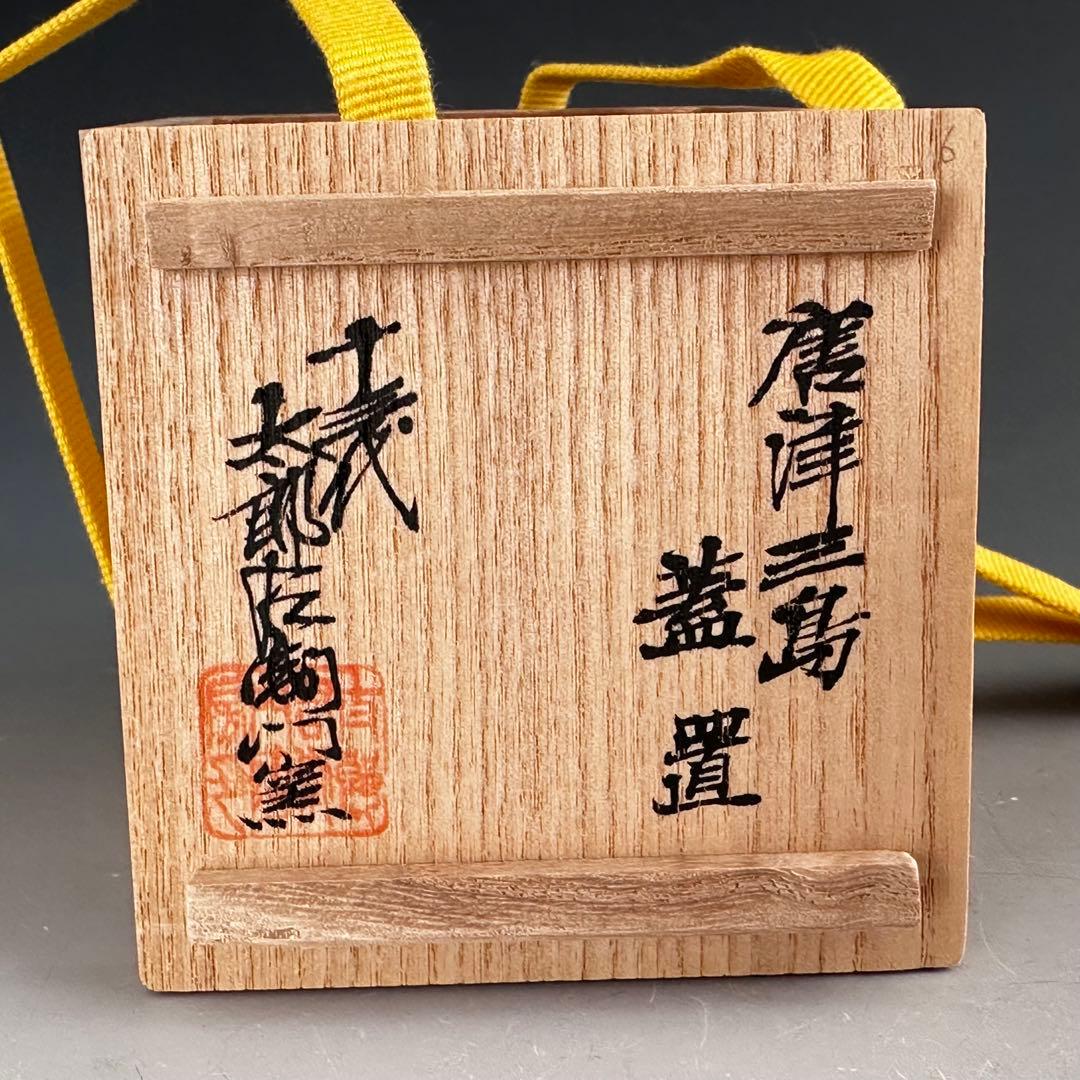 唐津三島
蓋置
十三代
太郎右衛門窯
6